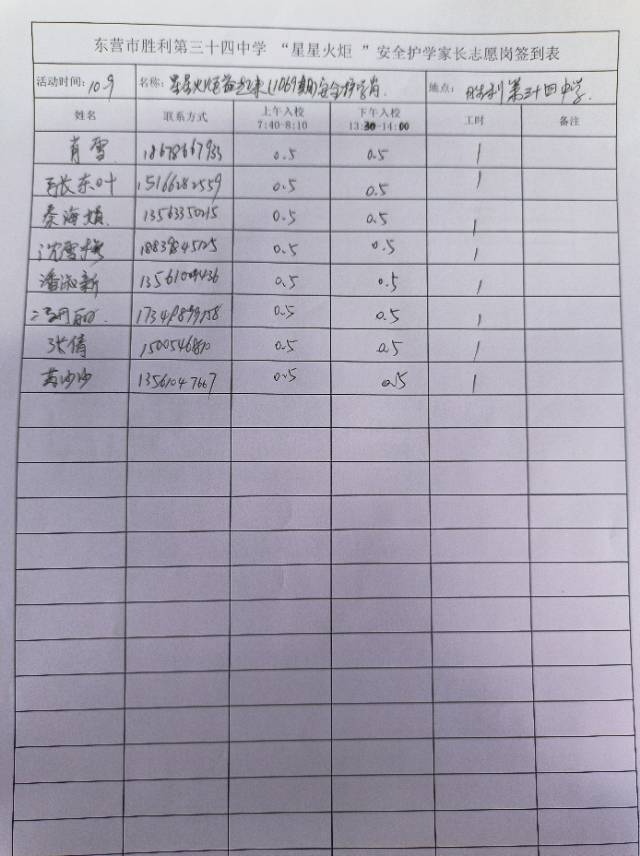 东营市胜利第三十四中学 “星星火炬 ”安全护学家长志愿岗签到表
活动时间:10.9 名称:星星火炬 (1069期)安全护学岗 地点:胜利第三十四中学.
姓名 联系方式 上午入校 7:40-8:10 下午入校 13:30-14:00 工时 备注
肖雪 18678667933 0.5 0.5 1
张东叶 15166282559 0.5 0.5 1
秦海 0.5 0.5 1
沈雪梅 0.5 0.5 1
潘淑新 0.5 0.5 1
0.5 0.5 1
张倩 0.5 0.5 1
黄沙沙 13561047667 0.5 0.5 1